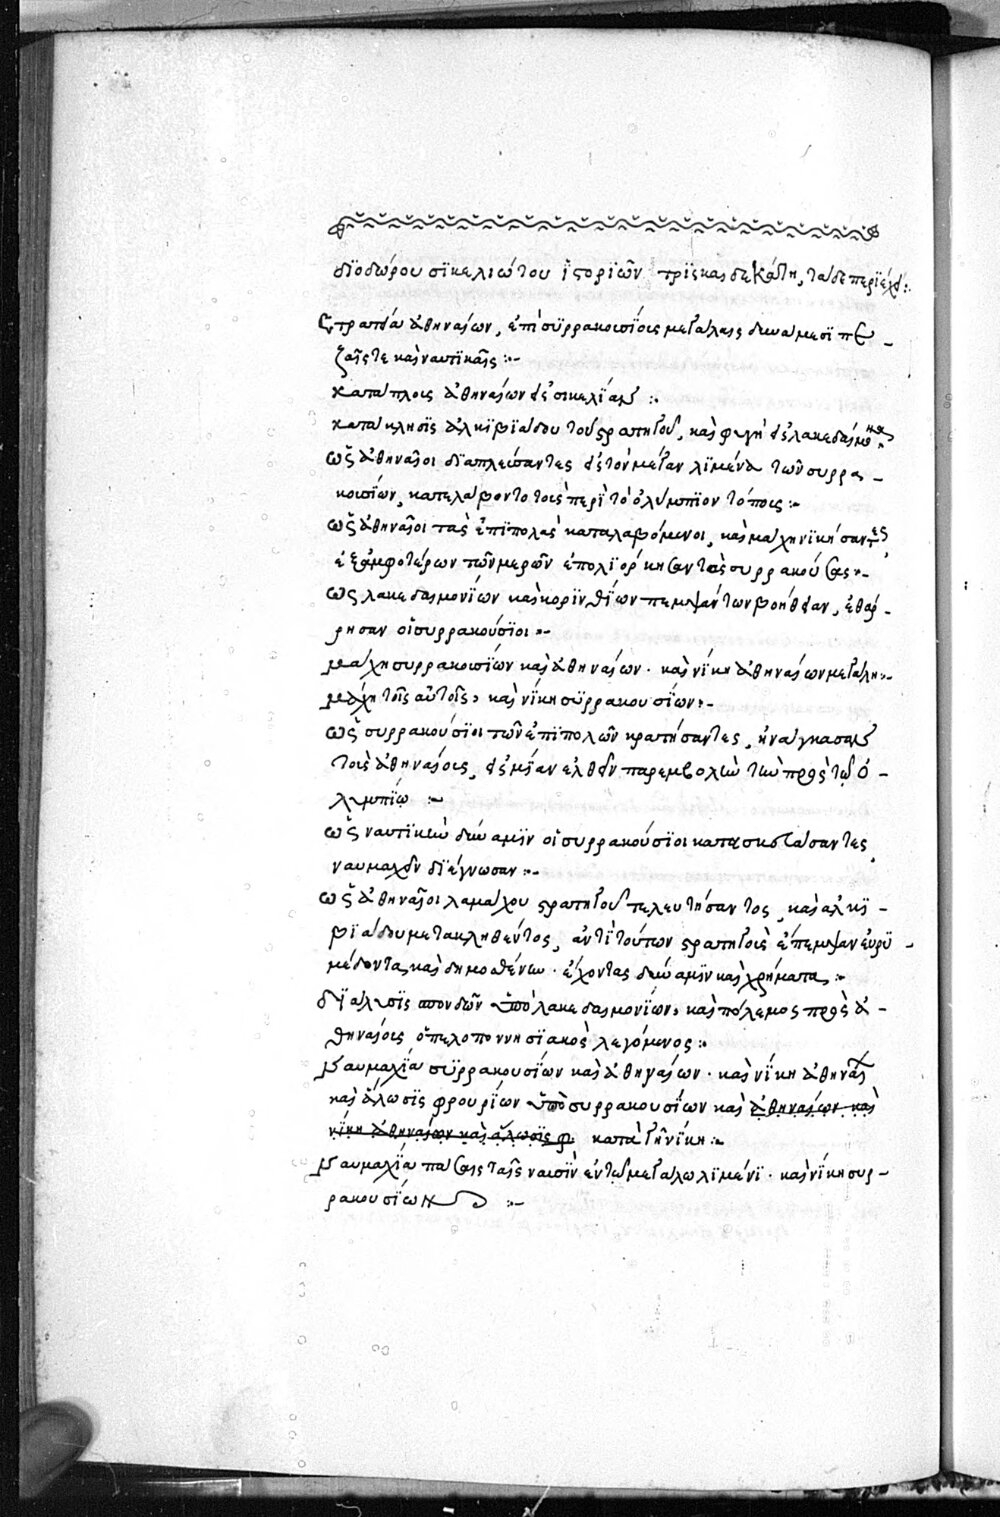 διοδώρου σικελιώτου ἱστοριῶν τρισκαιδεκάτη, τάδε περιέχει:
Στρατεία ἀθηναίων, ἐπὶ συρρακουσίοις μεγάλαις δυνάμεσι πε -
ζαῖς τε καὶ ναυτικαῖς :-
κατάπλοις ἀθηναίων εἰς σικελίαν :-
κατάκλησις ἀλκιβιάδου τοῦ στρατηγοῦ, καὶ φυγὴ εἰς λακεδαίμονα
ὡς ἀθηναῖοι διαπλεύσαντες εἰς τὸν μέγαν λιμένα τῶν συρρα -
κουσίων, κατελάβοντο τοὺς περὶ τὸ ὀλύμπιον τόποις :-
ὡς ἀθηναῖοι τὰς ἐπιπολὰς καταλαβόμενοι, καὶ μάχη νικήσαντες
ἐξ ἀμφοτέρων τῶν μερῶν ἐπολιόρκησαν τὰς συρρακούσας :-
ὡς λακεδαιμονίων καὶ κορινθίων πεμψάντων βοήθειαν, ἐθάρ -
ρησαν οἱ συρρακούσιοι :-
μάχη συρρακουσίων καὶ ἀθηναίων · καὶ νίκη ἀθηναίων μεγάλη :-
μάχη τοῖς αὐτοῖς, καὶ νίκη συρρακουσίων :-
ὡς συρρακούσιοι τῶν ἐπιπολῶν κρατήσαντες, ἠνάγκασαν
τοὺς ἀθηναίους, εἰς μίαν ἐλθεῖν παρεμβολὴν τὴν πρὸς τῷ ὀ -
λυμπίῳ :-
ὡς ναυτικὴν δύναμιν οἱ συρρακούσιοι κατασκευάσαντες,
ναυμαχεῖν διέγνωσαν :-
ὡς ἀθηναῖοι λαμάχου στρατηγοῦ τελευτήσαντος, καὶ αλκι -
βιάδου μετακληθέντος, ἀντὶ τούτων στρατηγοὺς ἐπεμψαν εὐρυ -
μέδοντα καὶ δημοσθένην · ἔχοντας δύναμιν καὶ χρήματα :-
διάλυσις σπονδῶν ὑπὸ λακεδαιμονίων, καὶ πόλεμος πρὸς ἀ -
θηναίοις ὁ πελοποννησιακὸς λεγόμενος :-
Ναυμαχία συρρακουσίων καὶ ἀθηναίων · καὶ νίκη ἀθηναίων
καὶ ἅλωσις φρουρίων ὑπὸ συρρακουσίων καὶ ἀθηναίων καὶ
νίκη ἀθηναίων καὶ ἅλωσις φ κατὰ γῆν νίκη :-
Ναυμαχία πάσαις ταῖς ναυσὶν ἐν τῷ μεγάλω λιμένι · καὶ νίκη συρ -
ρακουσίων :-